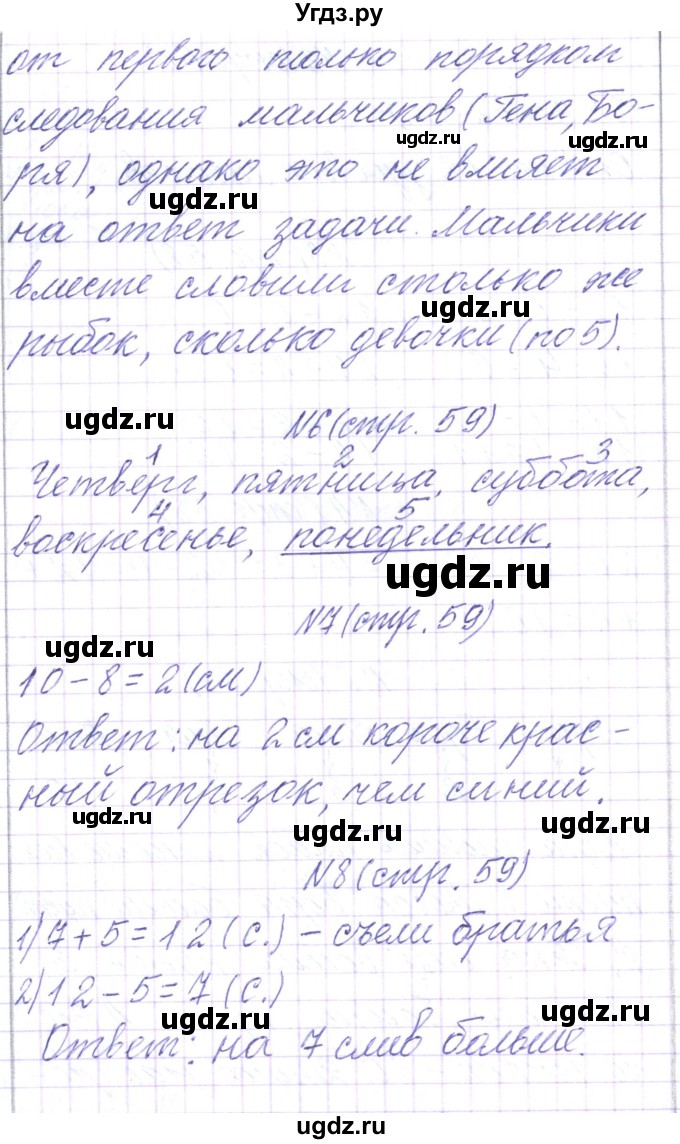 Угдз.ру
от первого только порядком
следования мальчиков (Гена, Бо-
ugdz.ru ugdz.ru
ря), однако это не влияет
ugdz.ru
на ответ задачи. Мальчики
вместе словили столько же
ugdz.ru
рыбок, сколько девочки (по 5).
ugdz.ru
N6 (стр. 59)
1 2 3
Четверг, пятница, суббота,
4 5
воскресенье, понедельник.
ugdz.ru
N7 (стр. 59)
ugdz.ru
10 - 8 = 2 (см)
Ответ: на 2 см короче крас-
ный отрезок, чем синий.
ugdz.ru ugdz.ru
N8 (стр. 59)
ugdz.ru
1) 7 + 5 = 12 (с.) – съели братья
2) 12 - 5 = 7 (с.)
ugdz.ru ugdz.ru
Ответ: на 7 слив больше.
ugdz.ru